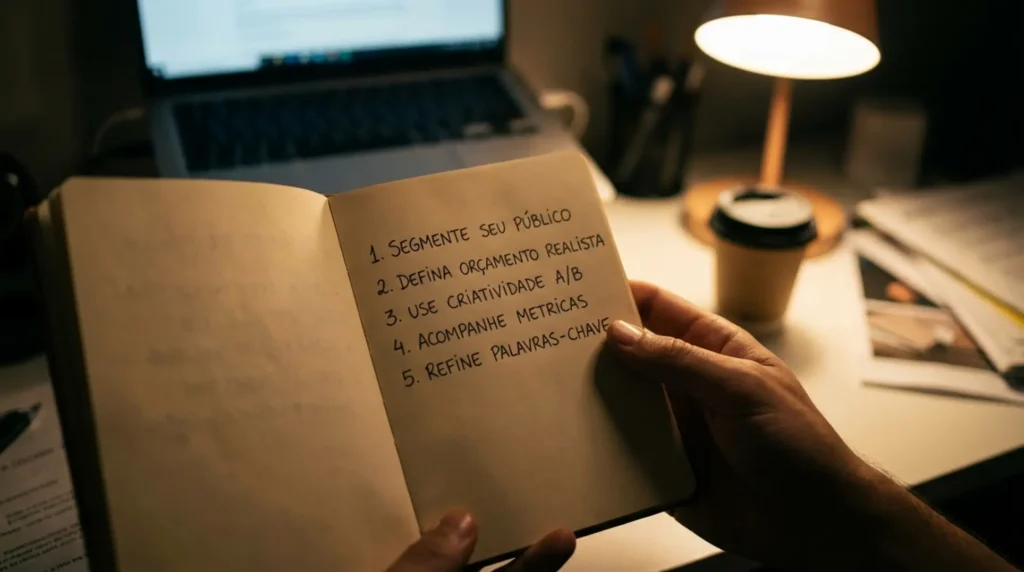 1. SEGMENTE SEU PÚBLICO
2. DEFINA ORÇAMENTO REALISTA
3. USE CRIATIVIDADE A/B
4. ACOMPANHE METRICAS
5. REFINE PALAVRAS-CHAVE